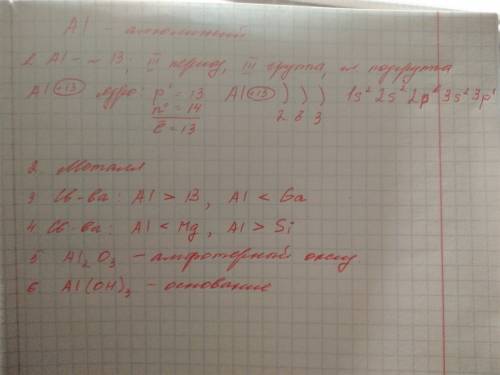 Al - алюминий
Al - III период, III группа, гл. подгруппа
Al +13 ядро: p⁺ = 13 Al +13 ) ) ) 1s² 2s² 2p⁶ 3s² 3p¹
n⁰ = 14 2 8 3
e = 13
2. Металл
3 Св-ва: Al > B, Al < Ga
4 Св-ва: Al < Mg, Al > Si
5. Al₂O₃ - амфотерный оксид
6. Al(OH)₃ - основание